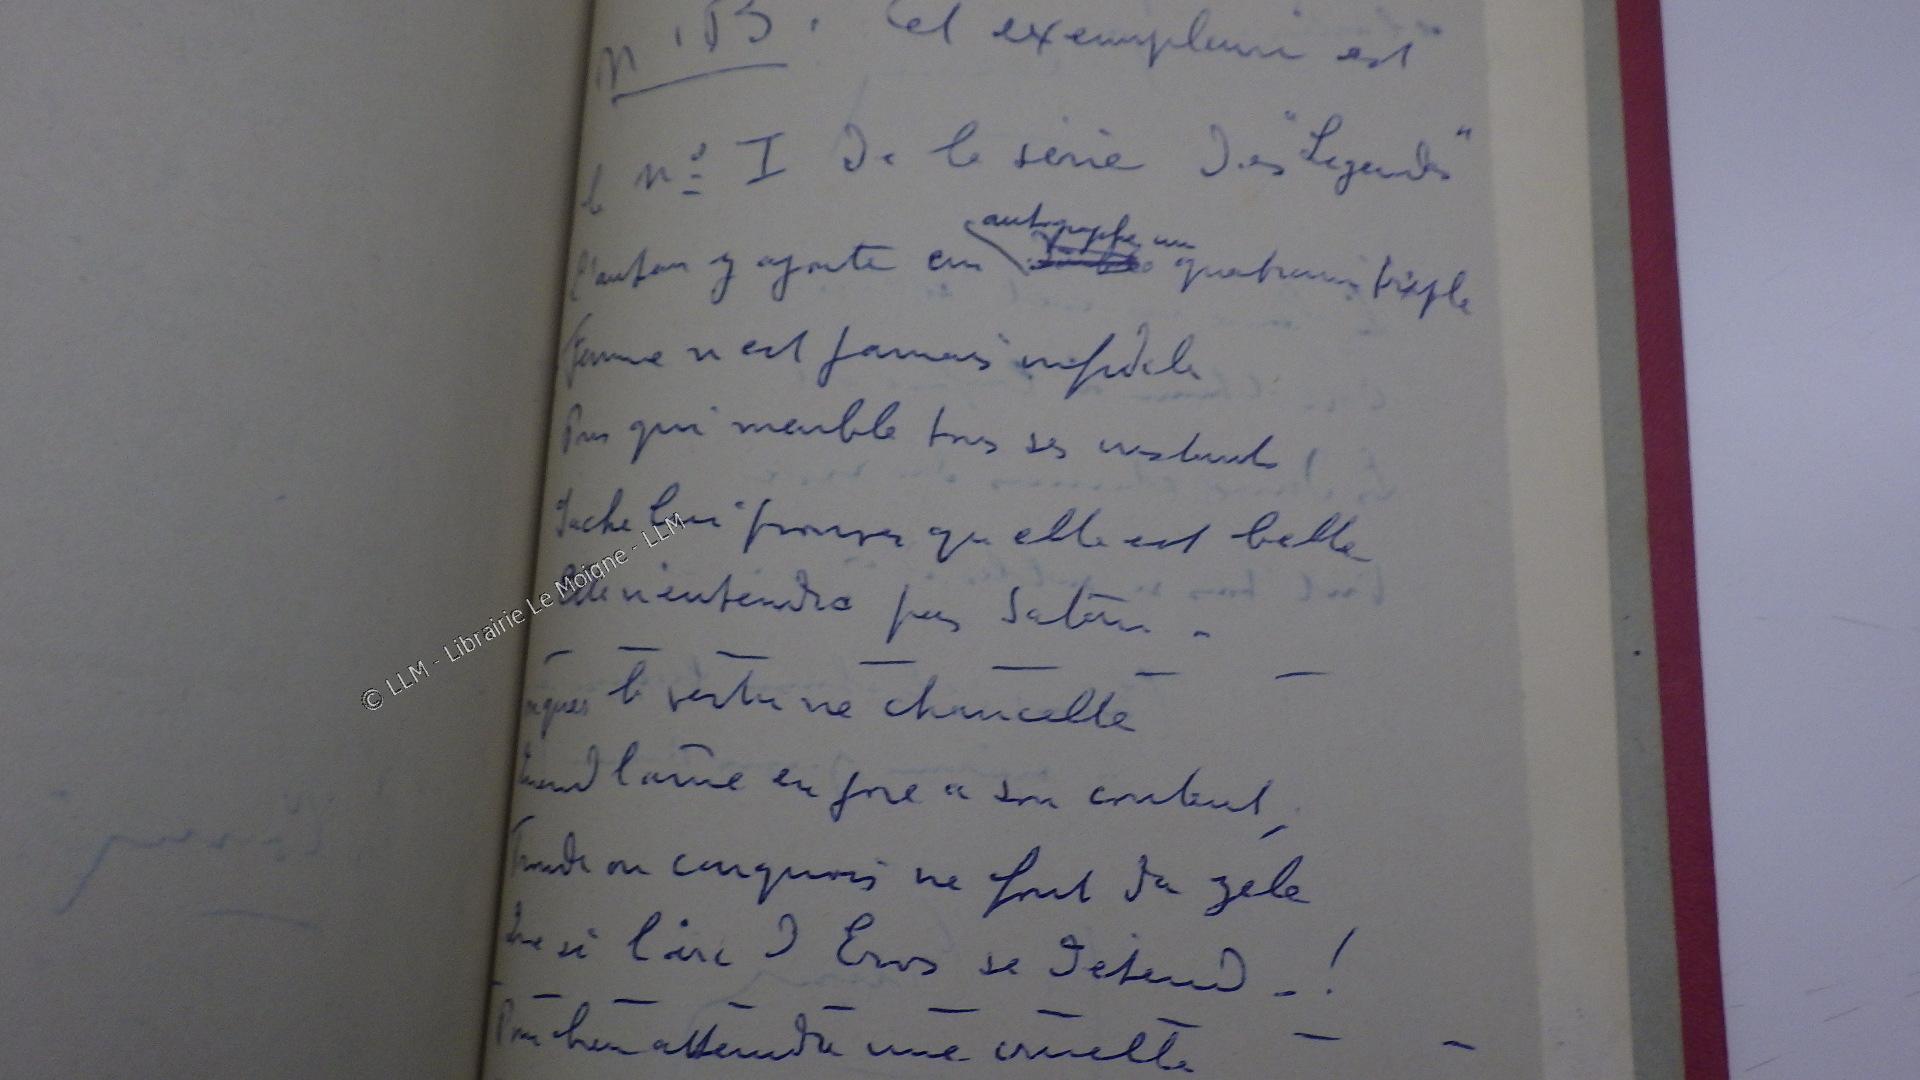 N.B. Cet exemplaire est
le nº I de la série des "Légendes"
autographe un
l'auteur y ajoute en quatrain triple
Femme n'est jamais infidèle
Pour qui meuble tous ses instants !
Sache lui prouver qu'elle est belle
Elle n'entendra pas Satan.
la vertu ne chancelle
Quand l'âme en joie a son content,
Fronde ou carquois ne font du zèle
Que si l'arc d'Eros se détend - !
Pour bien attendre une cruelle
© LLM - Librairie Le Moigne - LLM